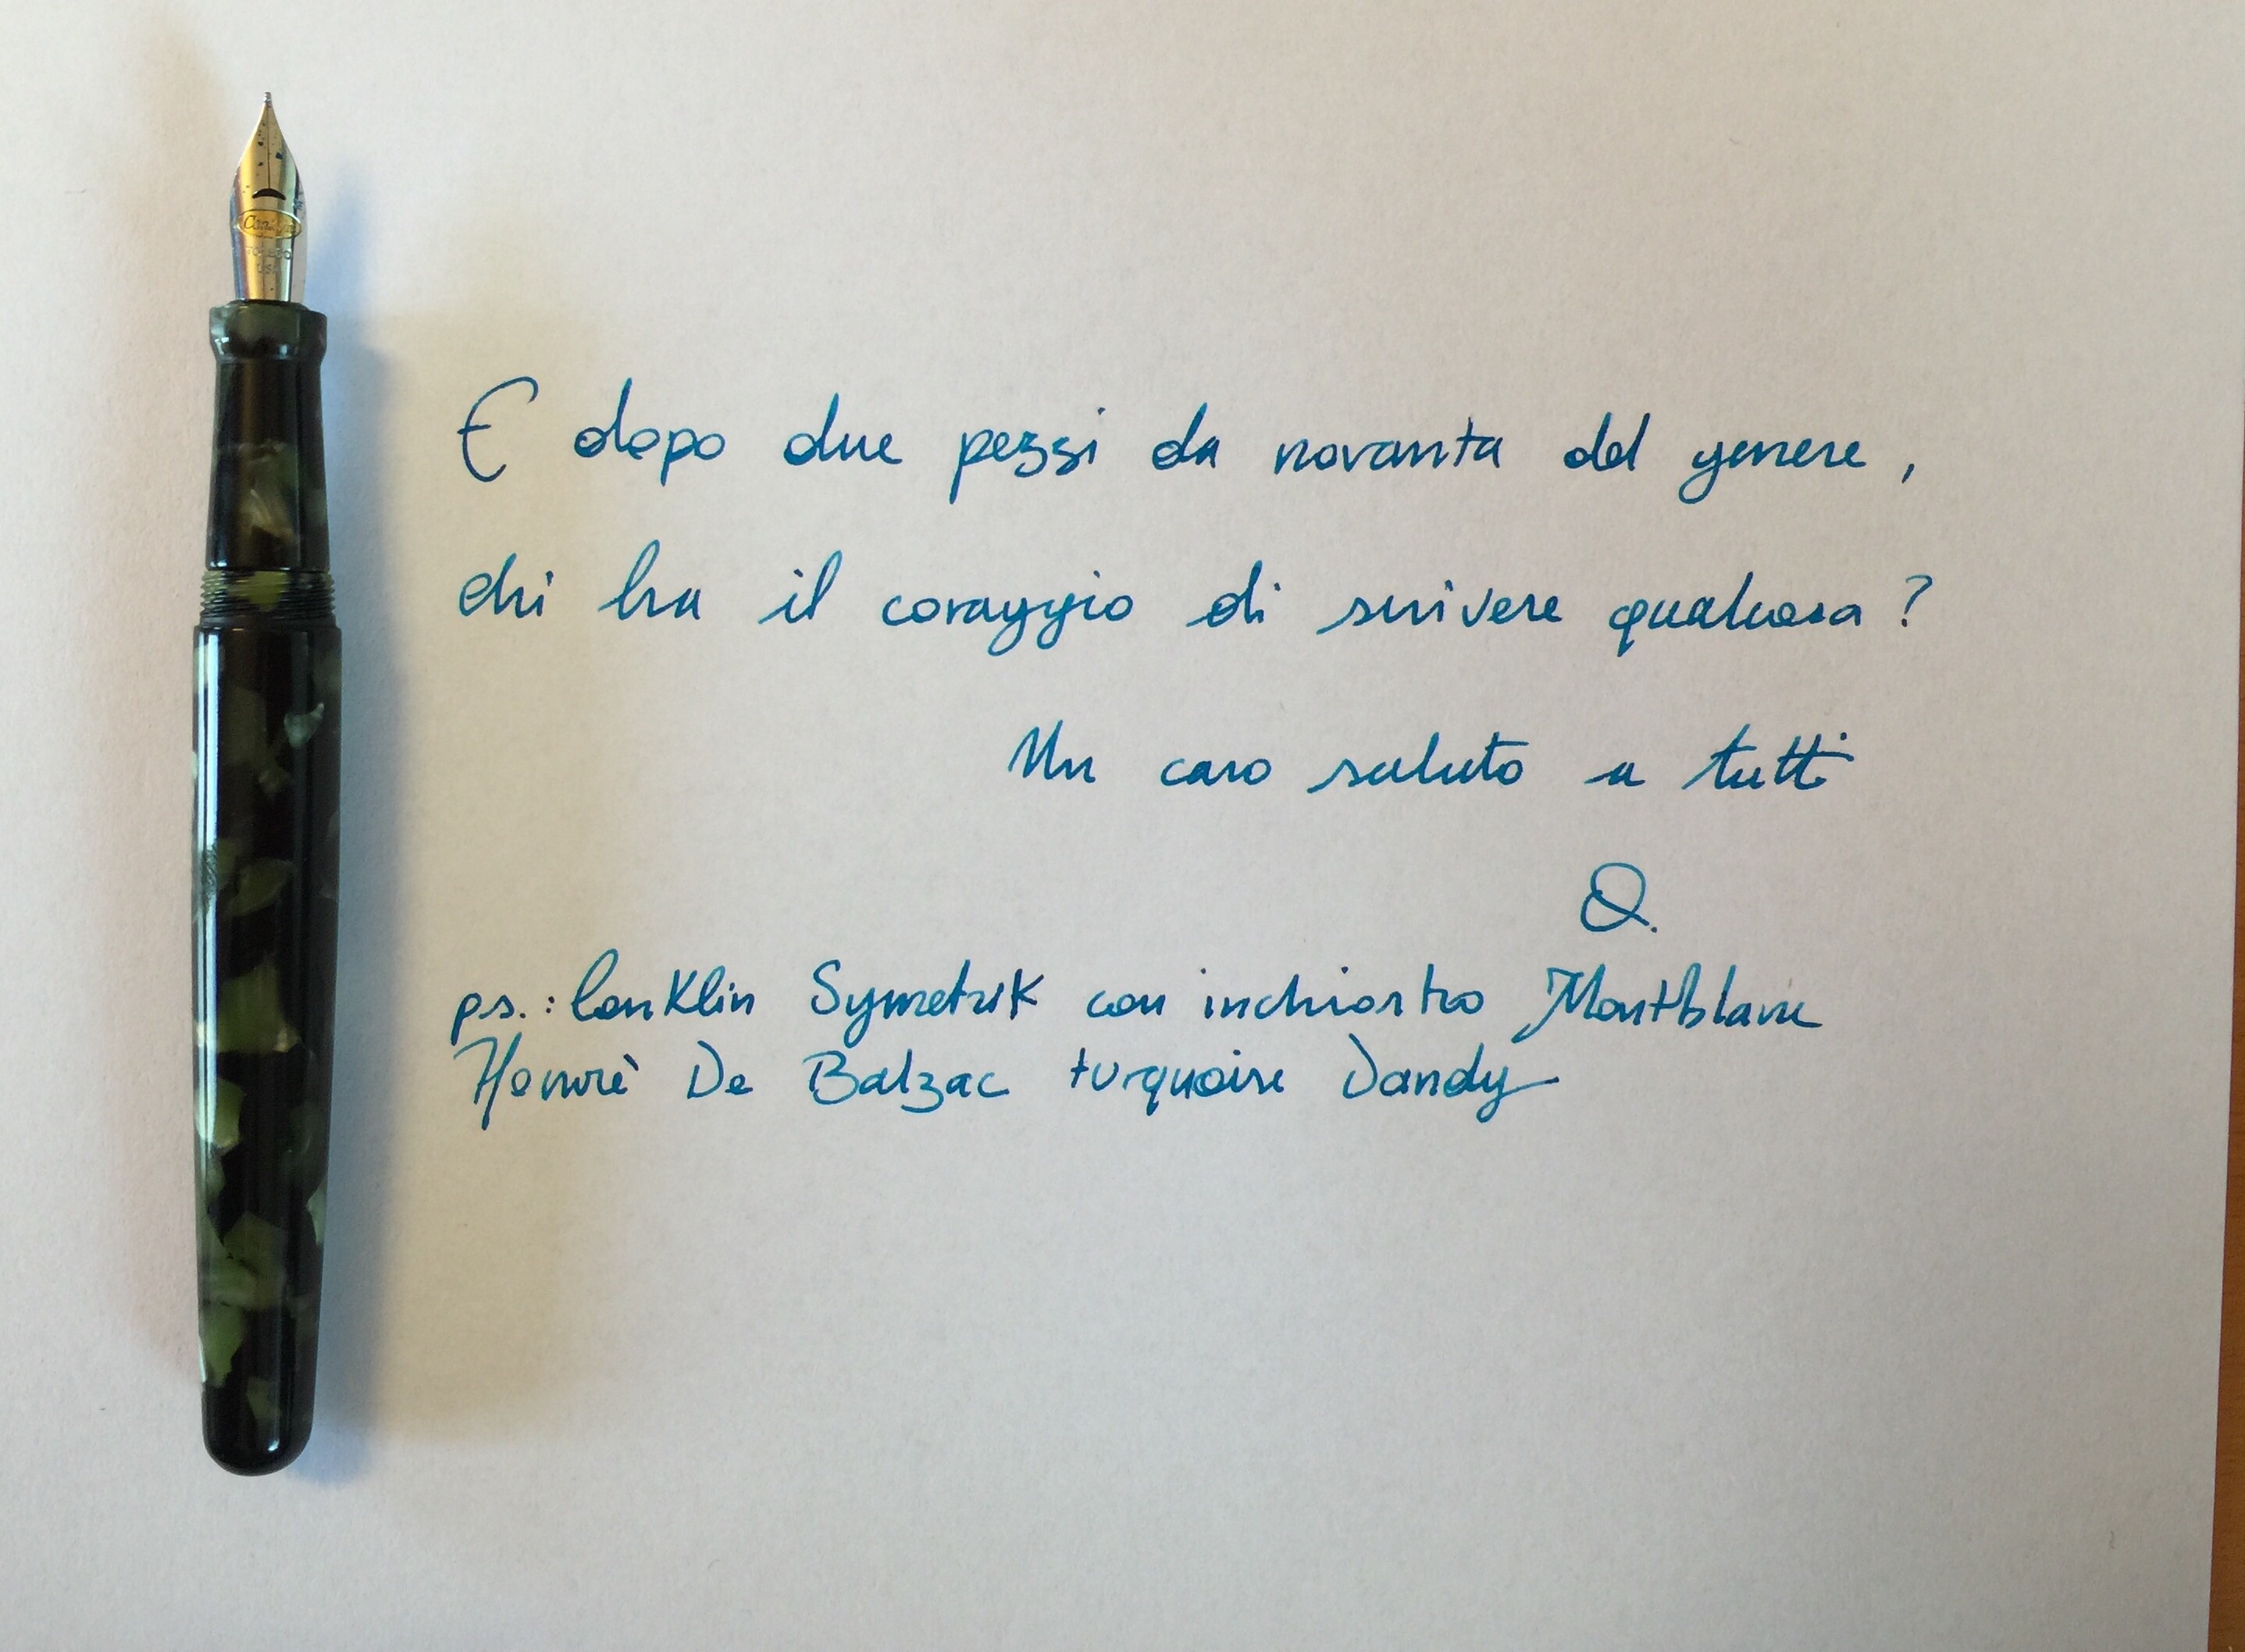 Conklin
TOLEDO
USA
E dopo due pezzi da novanta del genere,
chi ha il coraggio di scrivere qualcosa?
Un caro saluto a tutti
Q.
ps.: Conklin Symetrik con inchiostro Montblanc
Honorè De Balzac turquoise Dandy